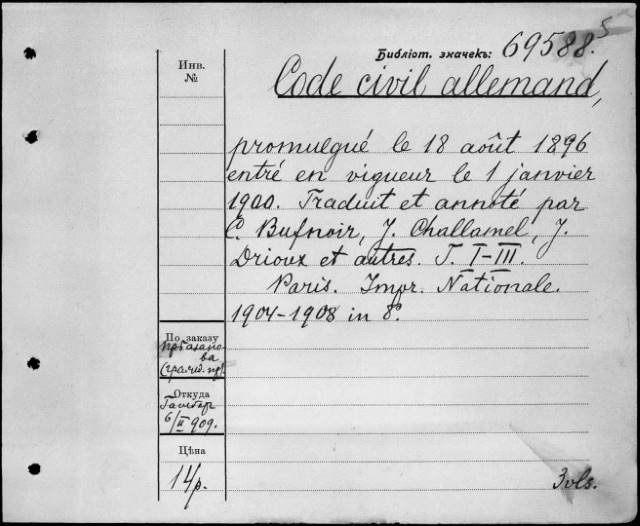 Библіот. значекъ: 69588.5
Инв. №
Code civil allemand,
promulgué le 18 août 1896
entré en vigueur le 1 janvier
1900. Traduit et annoté par
C. Bufnoir, J. Challamel, J.
Drioux et autres. T. I-III.
Paris. Impr. Nationale.
1904-1908 in 8º.
По заказу
(гражд. пр.)
Откуда
6/II 909.
Цѣна
14р.
3 vls.